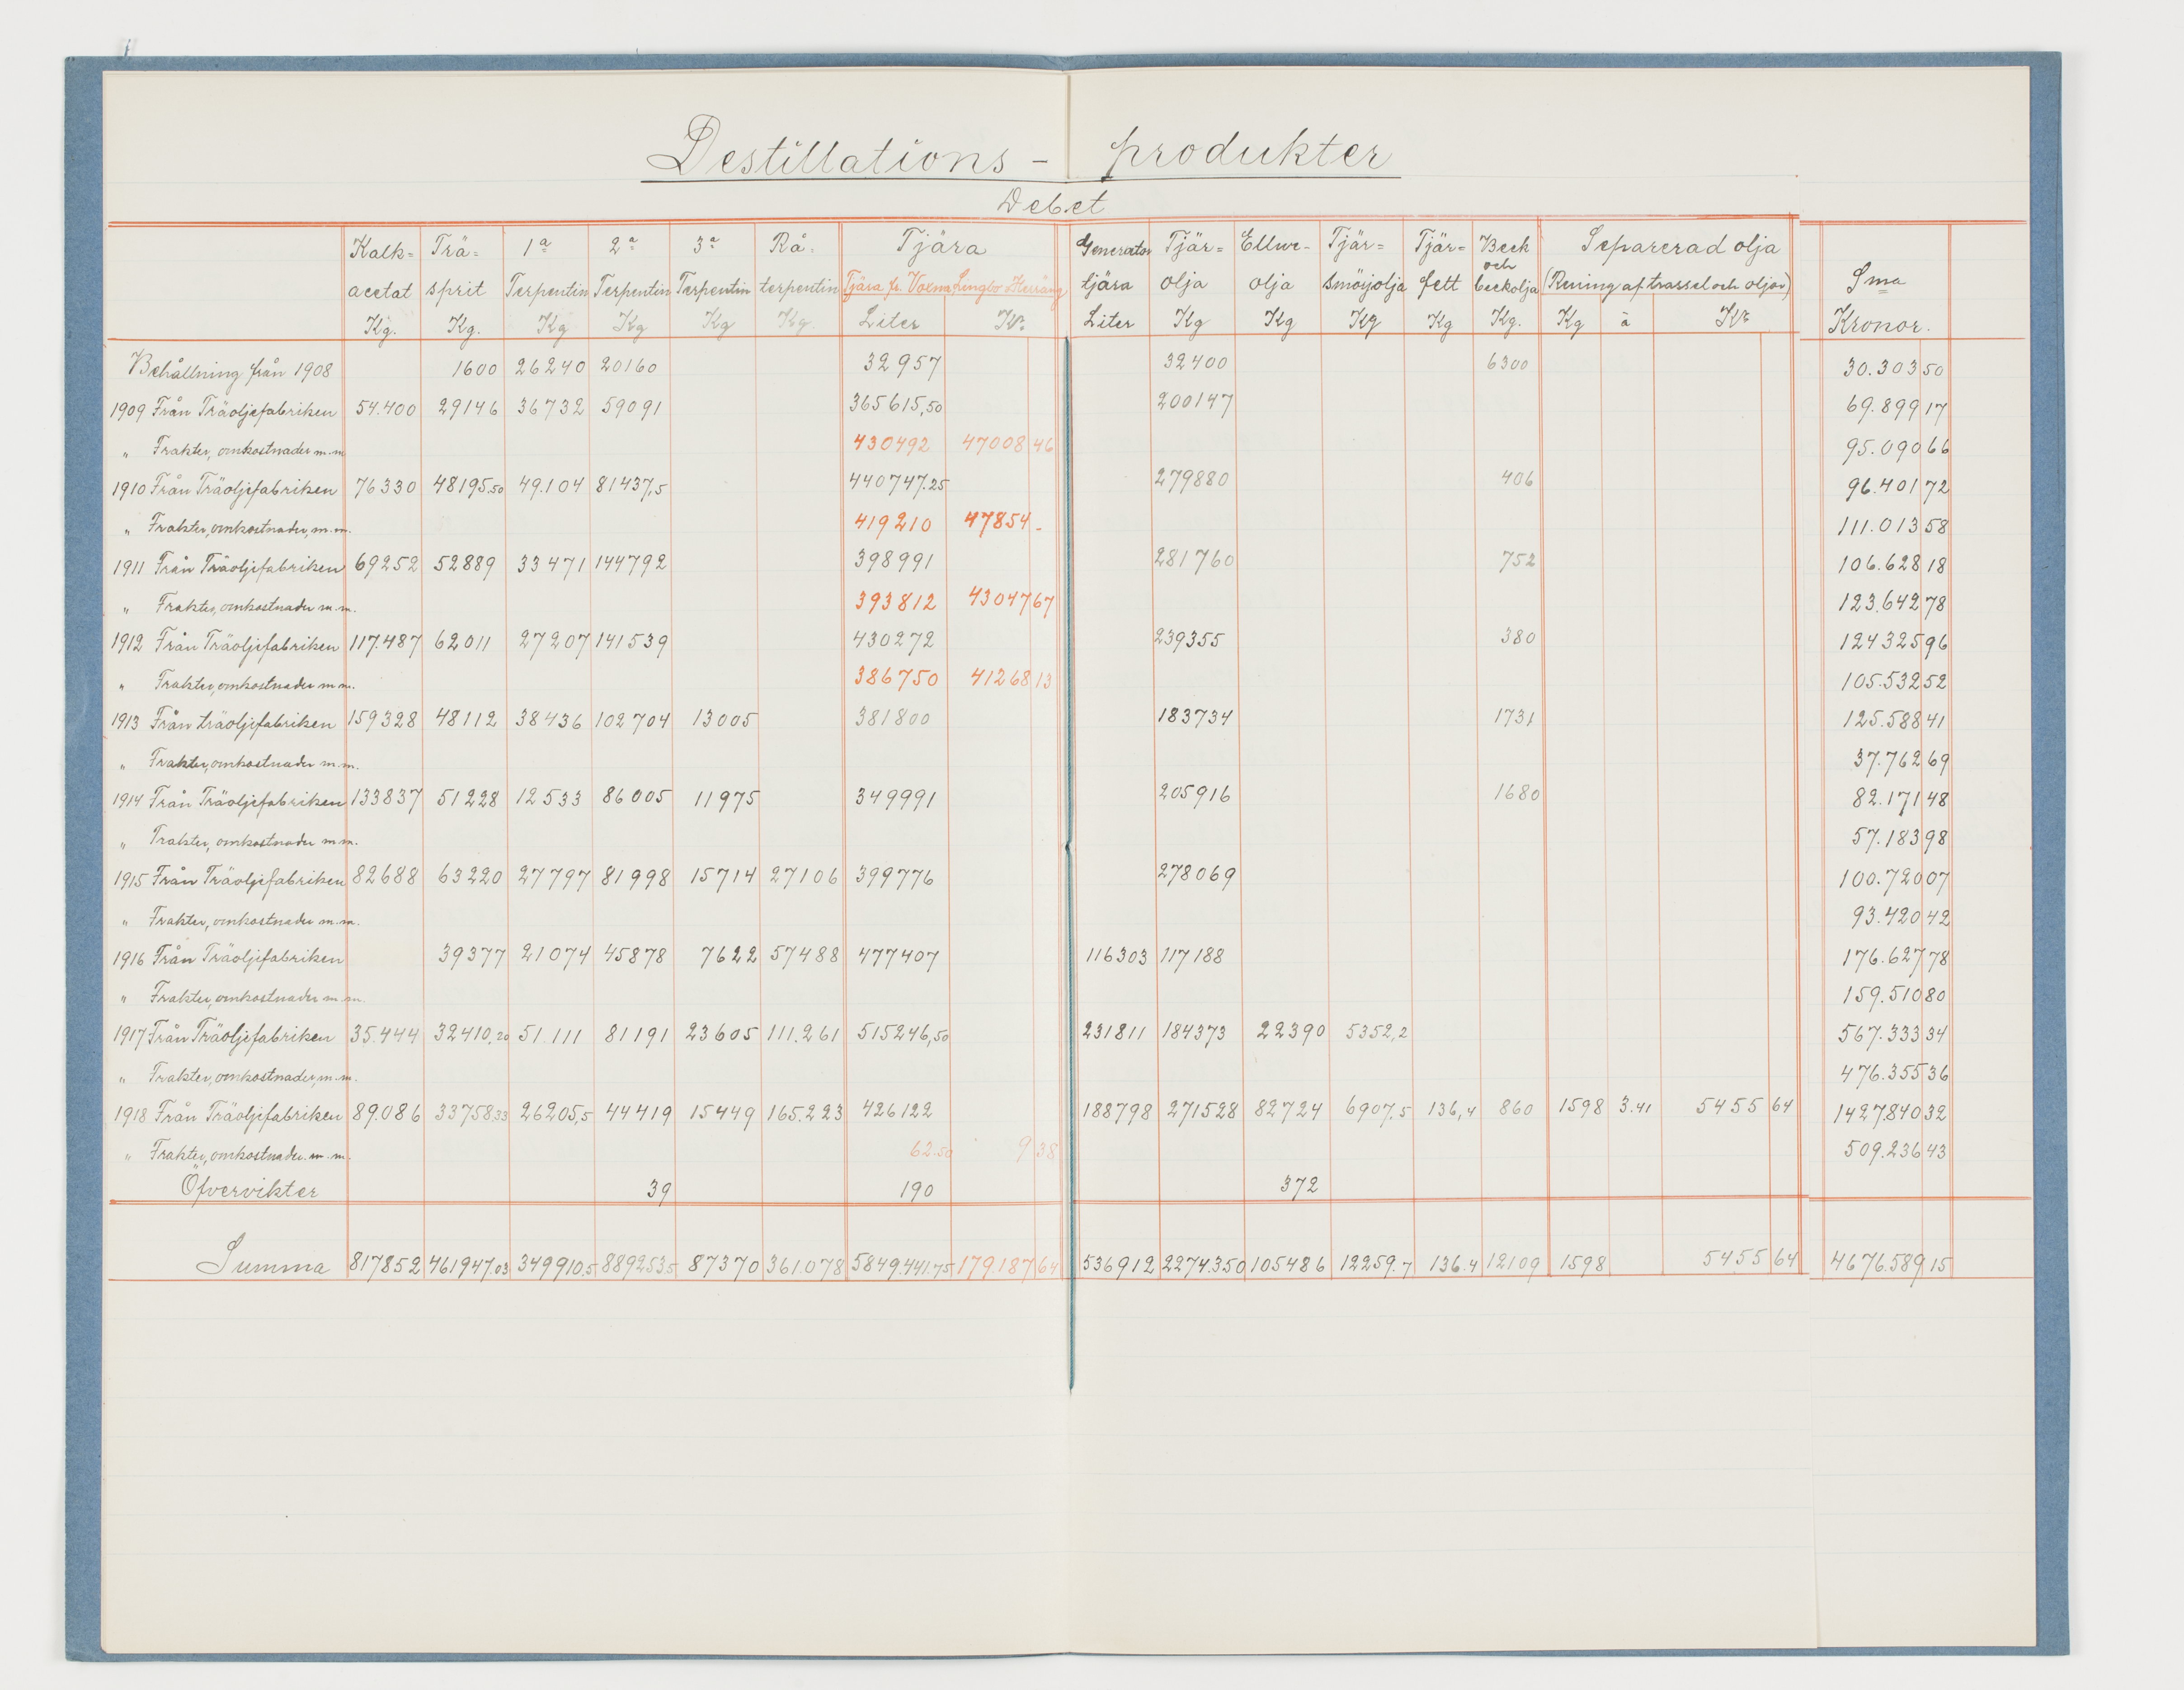 Destillations - produkter
Debet
Kalk= Trä= 1a 2a 3a Rå- Tjära Generator Tjär= Ellwe- Tjär= Tjär= Beck Separerad olja
och
acetat sprit Terpentin Terpentin Terpentin terpentin Tjära fr. Voxna, Lingbo Herräng tjära olja olja smörjolja fett beckolja (Rening af trassel och oljor) Sma
Kg. Kg. Kg Kg Kg Kg Liter Kr. Liter Kg Kg Kg Kg Kg. Kg à Kr Kronor.
Behållning från 1908 1600 26240 20160 32957 32400 6300 30.303 50
1909 Från Träoljefabriken 54.400 29146 36732 59091 365615,50 200147 69.899 17
" Frakter, omkostnader m.m. 430492 47008 46 95.090 66
1910 Från Träoljefabriken 76330 48195,50 49.104 81437,5 440747.25 279880 406 96.401 72
" Frakter, omkostnader, m.m. 419210 47854 - 111.013 58
1911 Från Träoljefabriken 69252 52889 33471 144792 398991 281760 752 106.628 18
" Frakter, omkostnader m.m. 393812 43047 67 123.642 78
1912 Från Träoljefabriken 117.487 62011 27207 141539 430272 239355 380 124325 96
" Frakter, omkostnader m.m. 386750 41268 13 105.532 52
1913 Från träoljefabriken 159328 48112 38436 102704 13005 381800 183734 1731 125.588 41
" Frakter, omkostnader m.m. 37.762 69
1914 Från Träoljefabriken 133837 51228 12533 86005 11975 349991 205916 1680 82.171 48
" Frakter, omkostnader m.m. 57.183 98
1915 Från Träoljefabriken 82688 63220 27797 81998 15714 27106 399776 278069 100.720 07
" Frakter, omkostnader m.m. 93.420 42
1916 Från Träoljefabriken 39377 21074 45878 7622 57488 477407 116303 117188 176.627 78
" Frakter, omkostnader m.m. 159.510 80
1917 Från Träoljefabriken 35.444 32410,20 51.111 81191 23605 111.261 515246,50 231811 184373 22390 5352,2 567.333 34
" Frakter, omkostnader, m.m. 476.355 36
1918 Från Träoljefabriken 89.086 33758,33 26205,5 44419 15449 165.223 426122 188798 271528 82724 6907,5 136,4 860 1598 3.41 5455 64 1427.840 32
" Frakter, omkostnader. m.m. 62.50 9 38 509.236 43
Öfvervikter 39 190 372
Summa 817852 461947.03 349910,5 889253,5 87370 361.078 5849.441.75 179.187 64 536912 2274.350 105486 12259.7 136.4 12109 1598 5455 64 4676.589 15